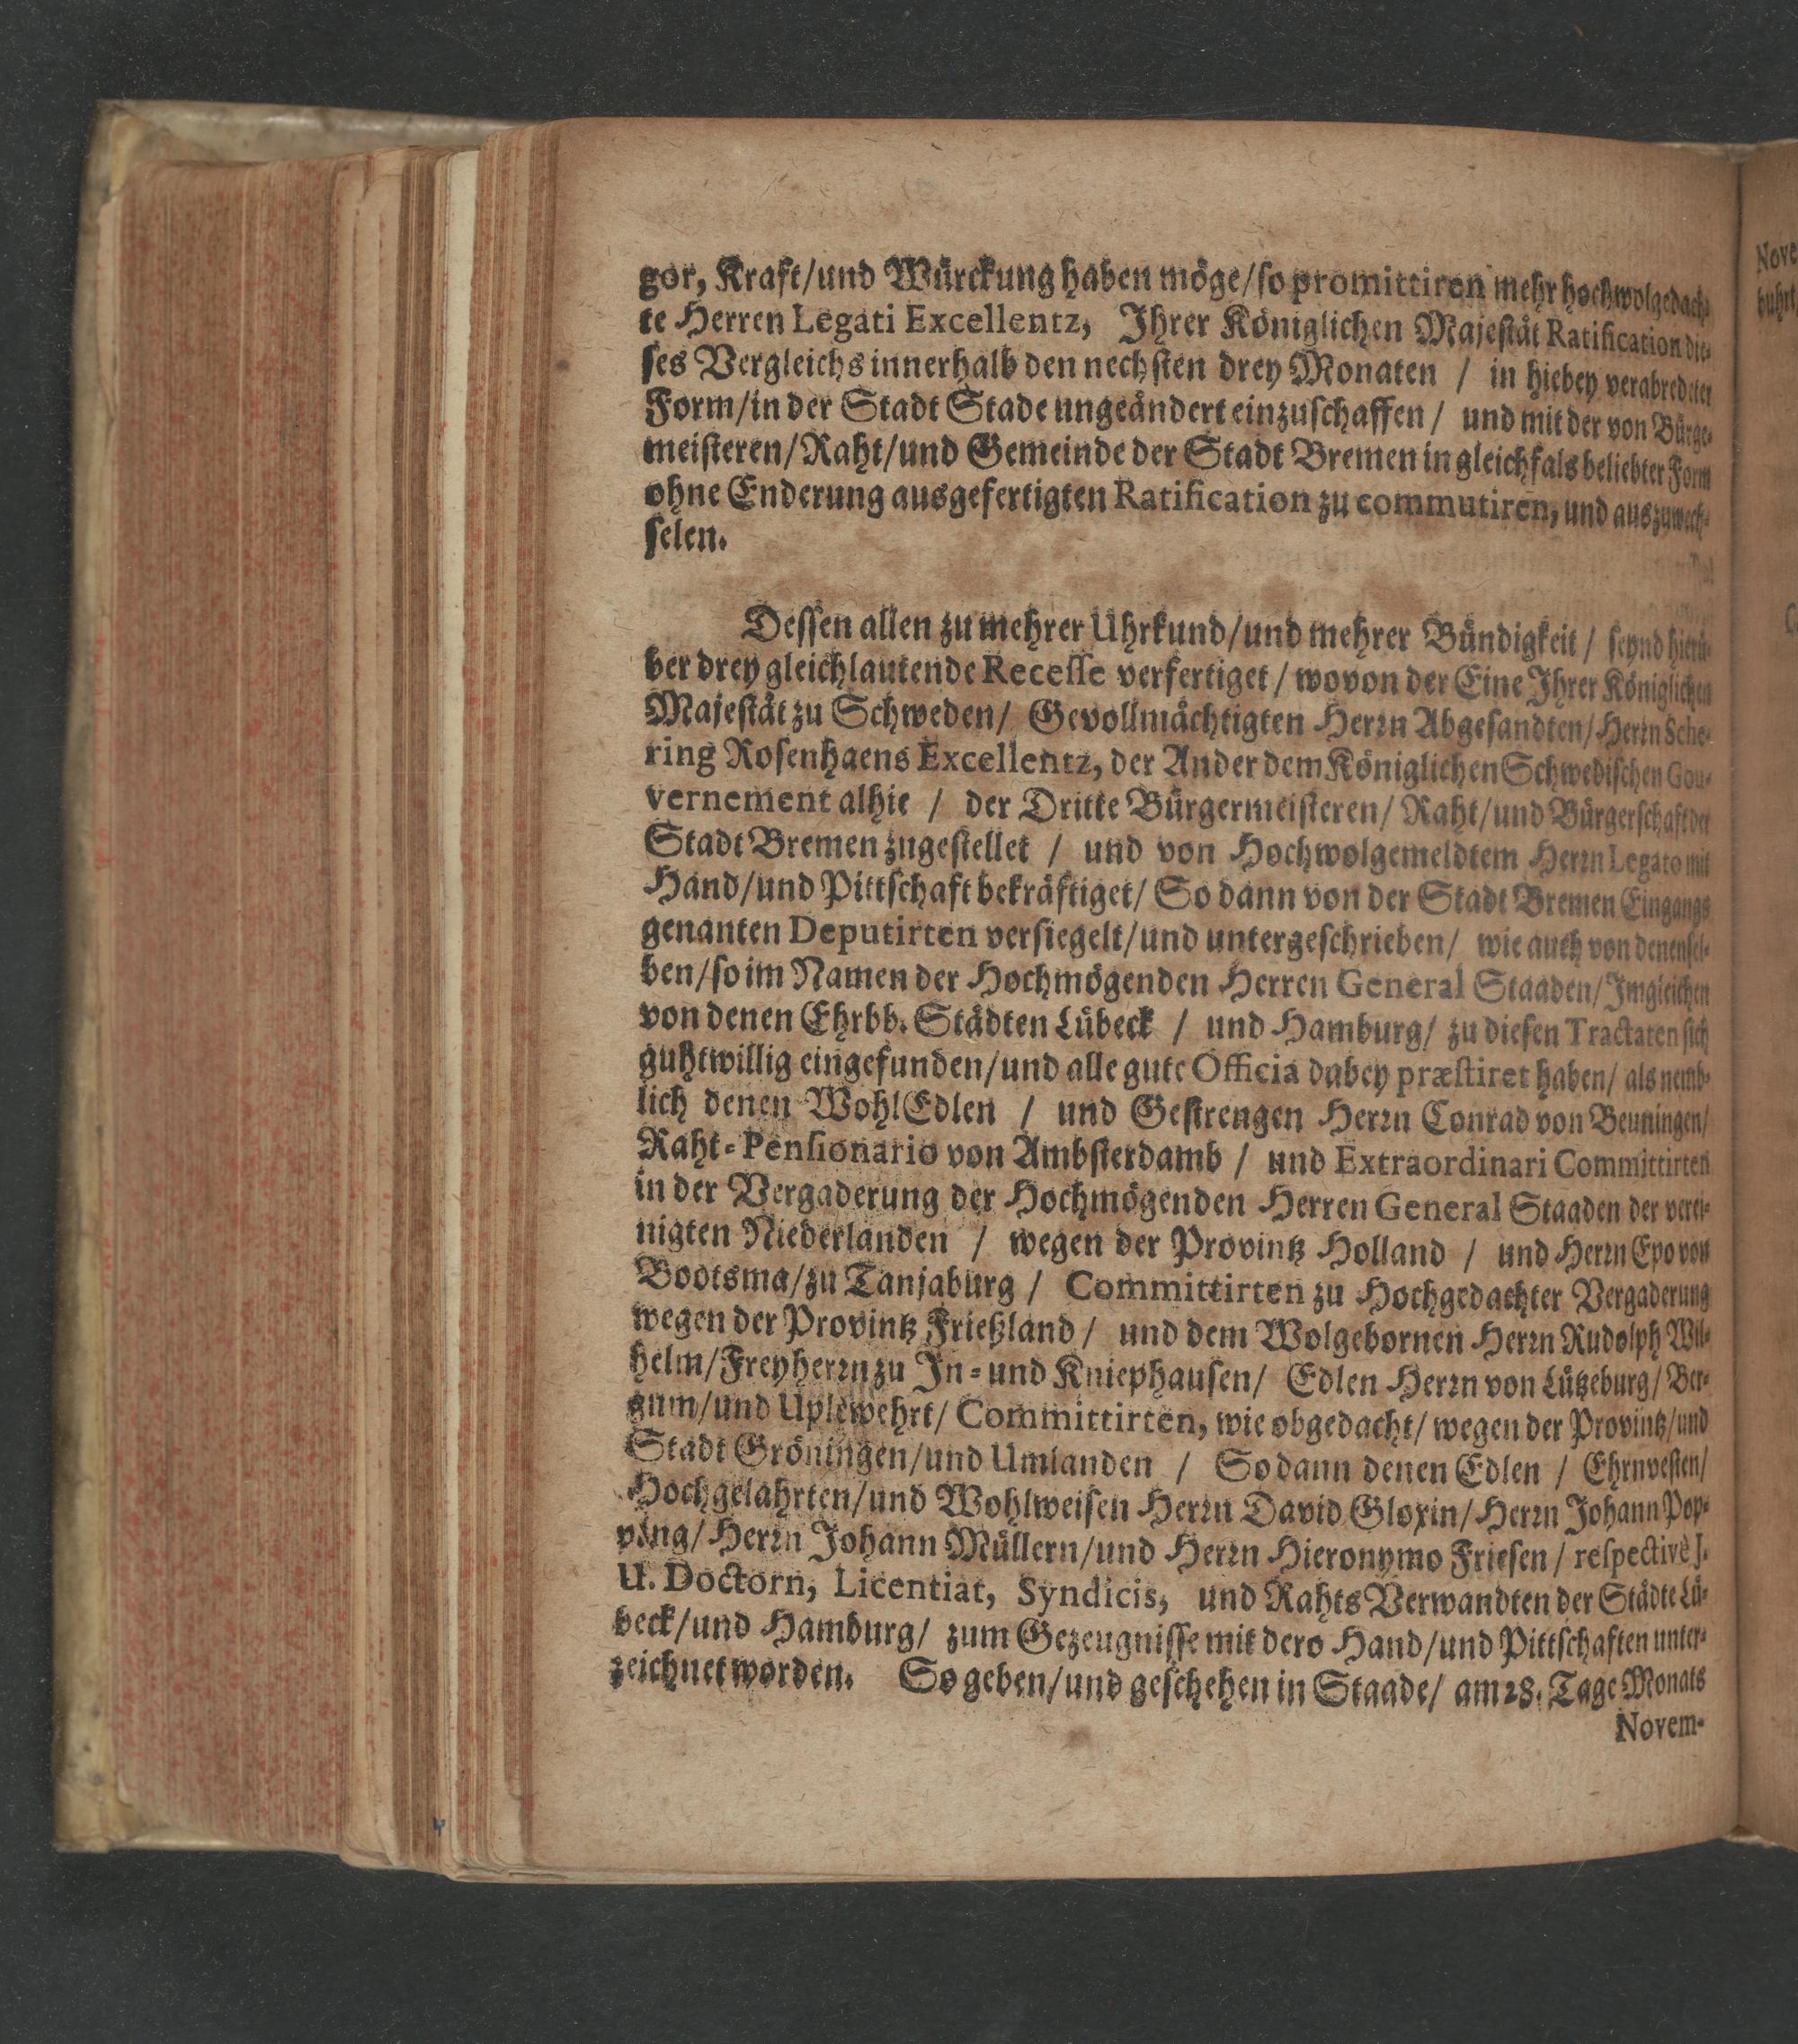 gor, Kraft/und Würckung haben möge/so promittiren mehr hochwolgedach-
te Herren Legati Excellentz, Ihrer Königlichen Majestät Ratification die-
ses Vergleichs innerhalb den nechsten drey Monaten / in hiebey verabredeter
Form/in der Stadt Stade ungeändert einzuschaffen / und mit der von Bürge-
meisteren/Raht/und Gemeinde der Stadt Bremen in gleichfals beliebter Form
ohne Enderung ausgefertigten Ratification zu commutiren, und auszuwech-
selen.
Dessen allen zu mehrer Uhrkund/und mehrer Bündigkeit / seynd hierü-
ber drey gleichlautende Recesse verfertiget / wovon der Eine Ihrer Königlichen
Majestät zu Schweden/ Gevollmächtigten Herrn Abgesandten/Herrn Sche-
ring Rosenhaens Excellentz, der Ander dem Königlichen Schwedischen Gou-
vernement alhie / der Dritte Bürgermeisteren/ Raht/und Bürgerschaft der
Stadt Bremen zugestellet / und von Hochwolgemeldtem Herrn Legato mit
Hand/und Pittschaft bekräftiget/ So dann von der Stadt Bremen Eingangs
genanten Deputirten versiegelt/und untergeschrieben/ wie auch von denensel-
ben/so im Namen der Hochmögenden Herren General Staaden/Imgleichen
von denen Ehrbb. Städten Lübeck / und Hamburg/ zu diesen Tractaten sich
guhtwillig eingefunden/und alle gute Officia dabey præstiret haben/ als nemb-
lich denen WohlEdlen / und Gestrengen Herrn Conrad von Beuningen/
Raht-Pensionario von Ambsterdamb / und Extraordinari Committirten
in der Vergaderung der Hochmögenden Herren General Staaden der verei-
nigten Niederlanden / wegen der Provintz Holland / und Herrn Epo von
Bootsma/zu Tanjaburg / Committirten zu Hochgedachter Vergaderung
wegen der Provintz Frießland / und dem Wolgebornen Herrn Rudolph Wil-
helm/Freyherrn zu In-und Kniephausen/ Edlen Herrn von Lützeburg/ Ber-
gum/und Uplewehrt/ Committirten, wie obgedacht/ wegen der Provintz/und
Stadt Gröningen/und Umlanden / So dann denen Edlen / Ehrnvesten/
Hochgelahrten/und Wohlweisen Herrn David Gloxin/Herrn Johann Pop-
ping/Herrn Johann Müllern/und Herrn Hieronymo Friesen / respectivè J.
U. Doctorn, Licentiat, Syndicis, und Rahts Verwandten der Städte Lü-
beck/und Hamburg/ zum Gezeugnisse mit dero Hand/und Pittschaften unter-
zeichnet worden. So geben/und geschehen in Staade/ am 28. Tage Monats
Novem-
Nove
buhrt